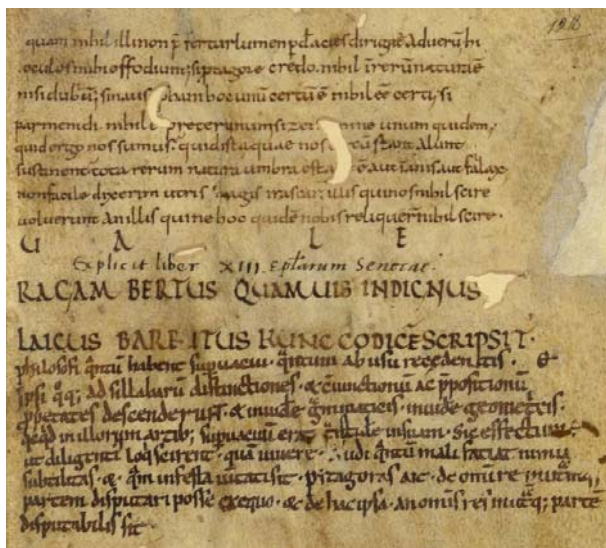 quam nihil illi non lumen acies dirigit ad verū hi
oculos mihi effodiunt; si ptagore credo. nihil in rerū natura ē
nisi dubiū; si hoc unū certū ē nihil eē certi; si
parmenidi. nihil preter unum si ne unum quidem.
quid ergo nos sumus quid ista quae nos stant alunt
sustinent tota rerum natura umbra est aut inanis aut falax
non facile dixerim utris magis irascar illis qui nos nihil scire
voluerunt an illis qui ne hoc quidē nobis reliquer nihil scire.
U A L E
Explicit liber XIII. Eplarum Senecae.
RAGAMBERTUS QUAMUIS INDIGNUS
LAICUS BARBITUS HUNC CODICĒ SCRIPSIT.
philosofi qntū habent supuacui. qntum ab usu recedentis. &
ipsi qq; ad sillabarū distinctiones. & ciunctionū ac ppositionū
ppetates descenderunt. & invide gmmaticis. invide geometris.
qcqd in illorum artib; supuacuū erat tstule in suam. Sic effectum
ut diligenti loq scirent. quā vivere. Audi qntū mali faciat nimia
subtilitas. & qm infesta vitati sit. pitagoras ait. de omi re in utqq;
partem disputari posse ex equo. & de hac ipsa. an omis res in utqq; partē
disputabilis sit.